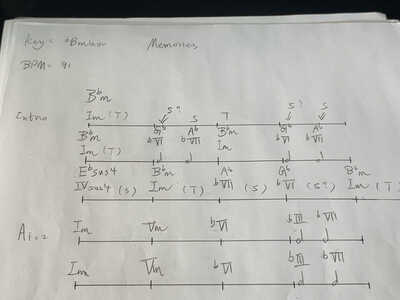 Key = ᵇBminor Memories
BPM = 91
B♭m
Im (T) S? S T S? S
Intro
B♭m G♭ A♭ B♭m G♭ A♭
Im (T) ♭VI ♭VII Im ♭VI ♭VII
E♭sus4 B♭m A♭ G♭ B♭m
IVsus4 (S) Im (T) ♭VII (S) ♭VI (S?) Im (T)
Im Vm ♭VI ♭III ♭VII
Im Vm ♭VI ♭III ♭VII